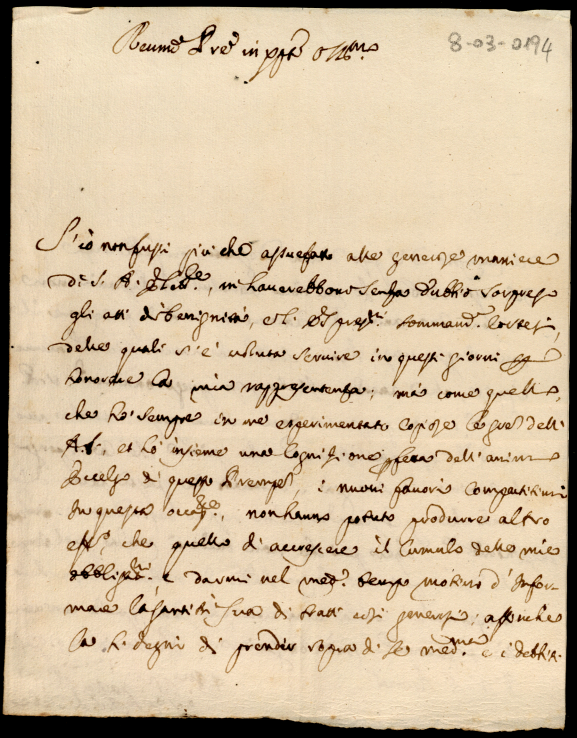 8-03-0194
Reumo Pre in Xpto Ossmo
S'io non fussi più che assuefatto alle generose maniere
di S. A. Elettle, mi haverebbono senza dubbio sorpreso
gli atti di benignità, e l'espresni commande cortesi,
delle quali s'è voluta servire in questi giorni per
honorare la mia rappresentanza; mà come quello,
che hò sempre in me esperimentato copiose le grae dell'
A. S., et hò insieme una cognizione perfetta dell'animo
Eccelso di questo Prenpe, i nuovi favori compartitimi
in questa occasne, non hanno potuto produrre altro
effo che quello di accrescere il cumulo delle mie
obbligni e darmi nel medo tempo motivo d'infor-
mare la Santità Sua di tratti così generosi; affinche
la si degni di prender sopra di se medma e i debiti